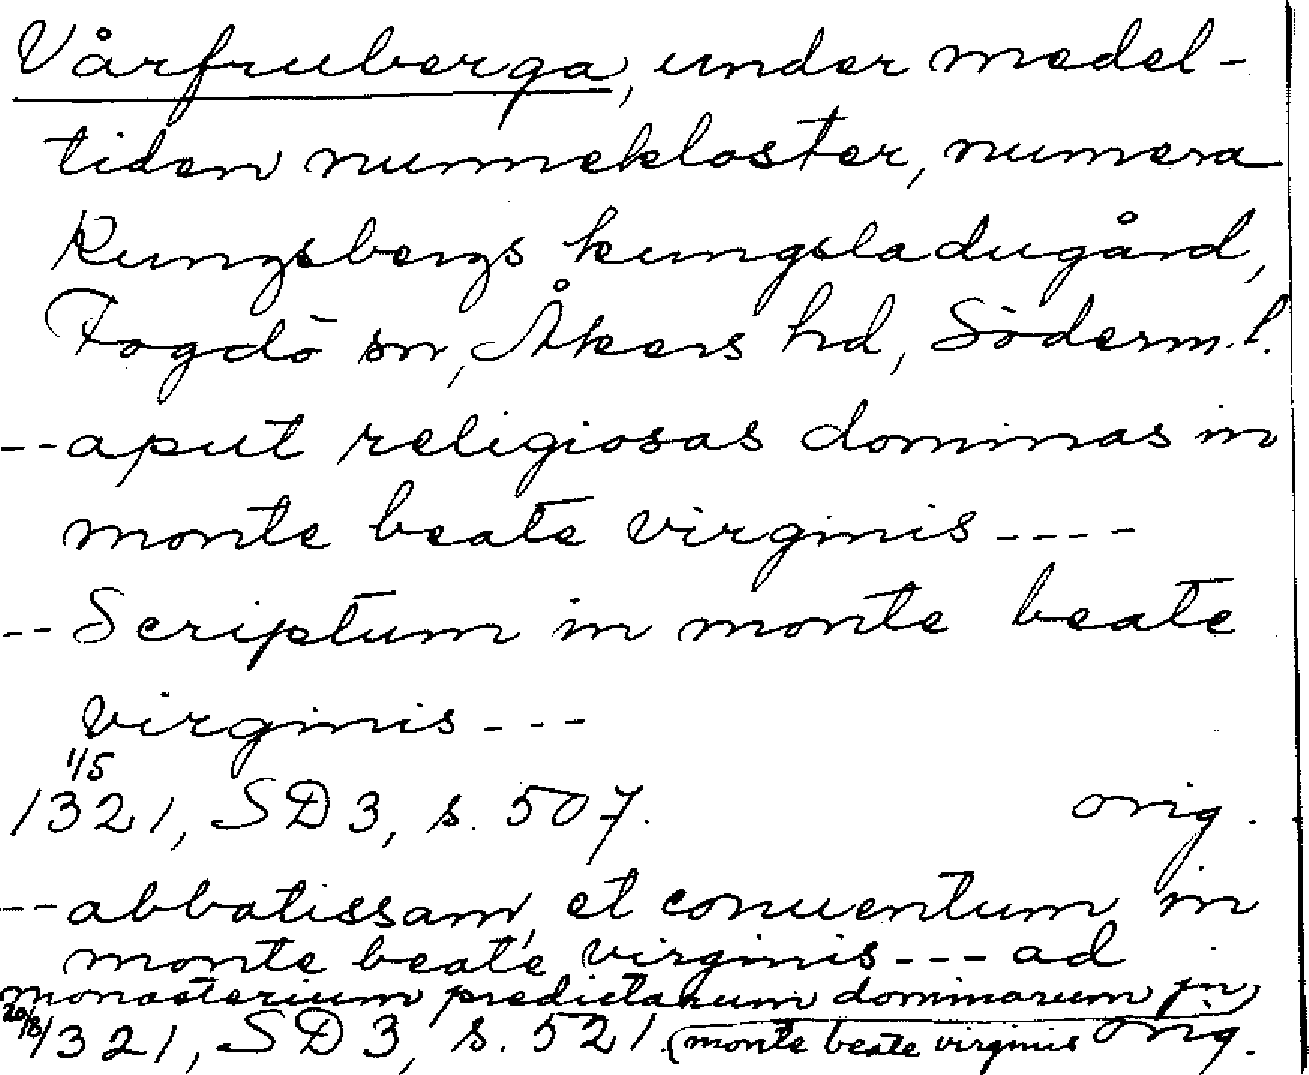 Vårfruberga, under medel-
tiden nunnekloster, numera
Kungsbergs kungsladugård,
Fogdö sn, Åkers hd, Söderm.l.
-- aput religiosas dominas in
monte beate virginis ----
-- Scriptum in monte beate
virginis ---
1/5
1321, SD 3, s. 507. orig.
-- abbatissam, et conuentum in
monte beate virginis --- ad
monasterium predictarum dominarum in
20/8 1321, SD 3, s. 521. (monte beate virginis orig.